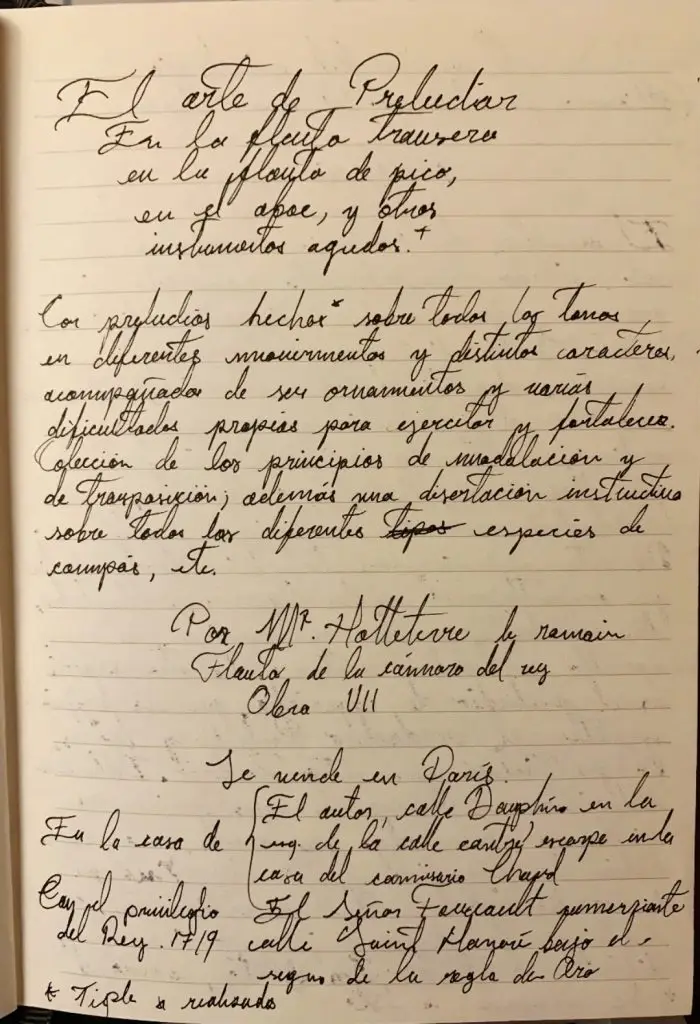 El arte de Preludiar
En la flauta travsera
en la flauta de pico,
en el oboe, y otros
instrumentos agudos.+
Con preludios hechos* sobre todos los tonos,
en diferentes movimientos y distintos caracteres,
acompañados de sus ornamentos y varias
dificultades propias para ejercitar y fortalecer.
Colección de los principios de modalación y
de trasposición; además una disertación instructiva
sobre todas las diferentes especies de
compás, etc.
Por Mr. Hotteterre le romain
Flauta de la cámara del rey
Obra VII
Se vende en París.
En la casa de { El autor, calle Dauphine en la
esq. de la calle contre escarpe en la
casa del comisario
Con el privilegio
del Rey. 1719
El Señor Foucault comerciante
calle Saint Honoré bajo el
signo de la regla de Oro
* Tiple realizado